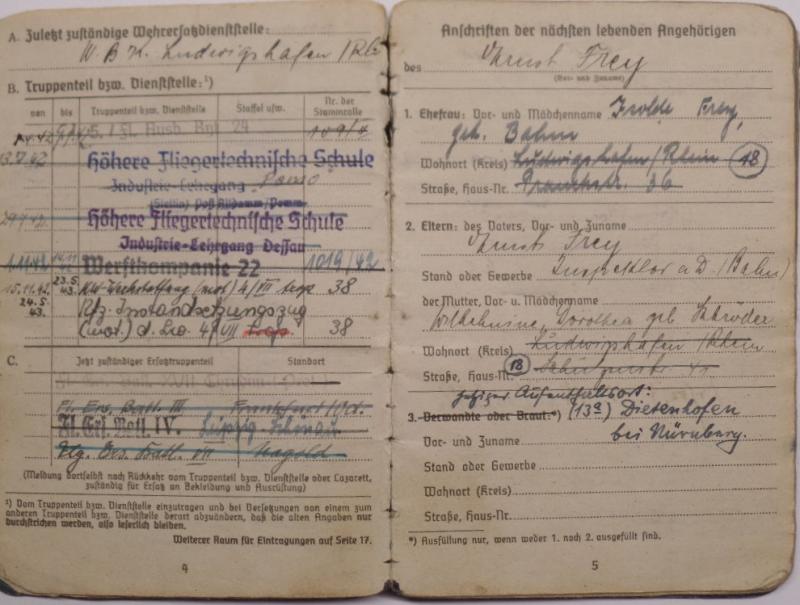 A. Zuletzt zuständige Wehrersatzdienststelle:
W. B. K. Ludwigshafen / Rh.
B. Truppenteil bzw. Dienststelle:¹)
von bis Truppenteil bzw. Dienststelle Staffel usw. Nr. der Stammrolle
24 109/4
13.7.42 Höhere Fliegertechnische Schule
Industrie-Lehrgang
Höhere Fliegertechnische Schule
Industrie-Lehrgang Dessau
Werftkompanie 22 1019/42
15.11.42. 23.5.43. (mot) 4/VII trop 38
24.5.43. Kfz. Instandsetzungszug
(mot.) d. Lw. 4/VII trop. 38
C. Jetzt zuständiger Ersatztruppenteil Standort
Fl. Ers. Batl. III Frankfurt/Od.
Fl. Ers. Batl. IV. Leipzig Schönau
Flg. Ers. Batl. VII Nagold
(Meldung dortselbst nach Rückkehr vom Truppenteil bzw. Dienststelle oder Lazarett,
zuständig für Ersatz an Bekleidung und Ausrüstung)
¹) Vom Truppenteil bzw. Dienststelle einzutragen und bei Versetzungen von einem zum
anderen Truppenteil bzw. Dienststelle derart abzuändern, daß die alten Angaben nur
durchstrichen werden, also leserlich bleiben.
Weiterer Raum für Eintragungen auf Seite 17.
4
Anschriften der nächsten lebenden Angehörigen
des Ernst Frey
(Vor- und Zuname)
1. Ehefrau: Vor- und Mädchenname Isolde Frey,
geb. Bahm
Wohnort (Kreis) Ludwigshafen/Rhein 18
Straße, Haus-Nr. 36
2. Eltern: des Vaters, Vor- und Zuname
Ernst Frey
Stand oder Gewerbe Inspektor a D (Bahn)
der Mutter, Vor- u. Mädchenname
Wilhelmine, Dorothea geb. Schröder
Wohnort (Kreis) Ludwigshafen/Rhein
Straße, Haus-Nr. 18
jetziger Aufenthaltsort:
3. Verwandte oder Braut:*) (13a) Dietenhofen
Vor- und Zuname bei Nürnberg.
Stand oder Gewerbe
Wohnort (Kreis)
Straße, Haus-Nr.
*) Ausfüllung nur, wenn weder 1. noch 2. ausgefüllt sind.
5